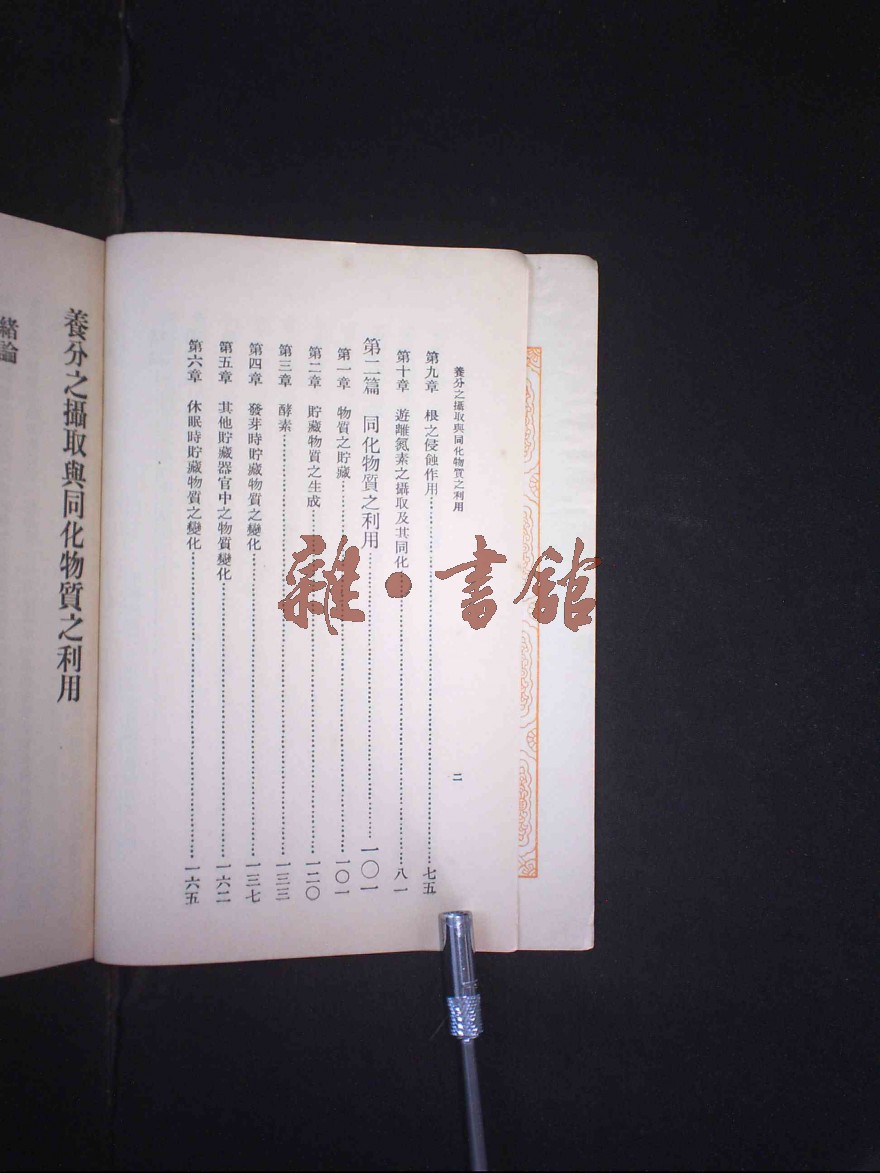 養分之攝取與同化物質之利用
二
第九章 根之侵蝕作用……七五
第十章 遊離氮素之攝取及其同化……八一
第二篇 同化物質之利用……一〇一
第一章 物質之貯藏……一〇一
第二章 貯藏物質之生成……一二〇
第三章 酵素……一三三
第四章 發芽時貯藏物質之變化……一三七
第五章 其他貯藏器官中之物質變化……一六二
第六章 休眠時貯藏物質之變化……一六五
養分之攝取與同化物質之利用
緒論
雜·書館